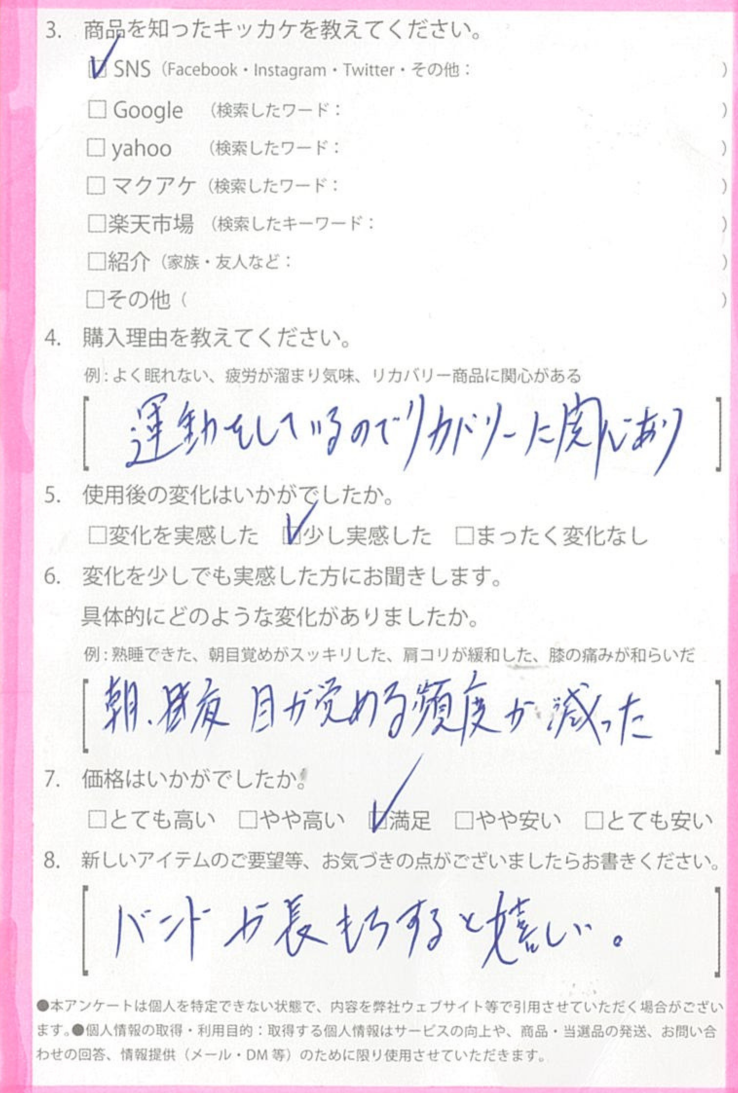 3. 商品を知ったキッカケを教えてください。
☑ SNS（Facebook・Instagram・Twitter・その他： ）
□ Google （検索したワード： ）
□ yahoo （検索したワード： ）
□ マクアケ（検索したワード： ）
□楽天市場 （検索したキーワード： ）
□紹介（家族・友人など： ）
□その他（ ）
4. 購入理由を教えてください。
例：よく眠れない、疲労が溜まり気味、リカバリー商品に関心がある
運動をしているのでリカバリーに関心あり
5. 使用後の変化はいかがでしたか。
□変化を実感した ☑少し実感した □まったく変化なし
6. 変化を少しでも実感した方にお聞きします。
具体的にどのような変化がありましたか。
例：熟睡できた、朝目覚めがスッキリした、肩コリが緩和した、膝の痛みが和らいだ
朝、夜 目が覚める頻度が減った
7. 価格はいかがでしたか。
□とても高い □やや高い ☑満足 □やや安い □とても安い
8. 新しいアイテムのご要望等、お気づきの点がございましたらお書きください。
バンドが長もちすると嬉しい。
●本アンケートは個人を特定できない状態で、内容を弊社ウェブサイト等で引用させていただく場合がござい
ます。●個人情報の取得・利用目的：取得する個人情報はサービスの向上や、商品・当選品の発送、お問い合
わせの回答、情報提供（メール・DM 等）のために限り使用させていただきます。